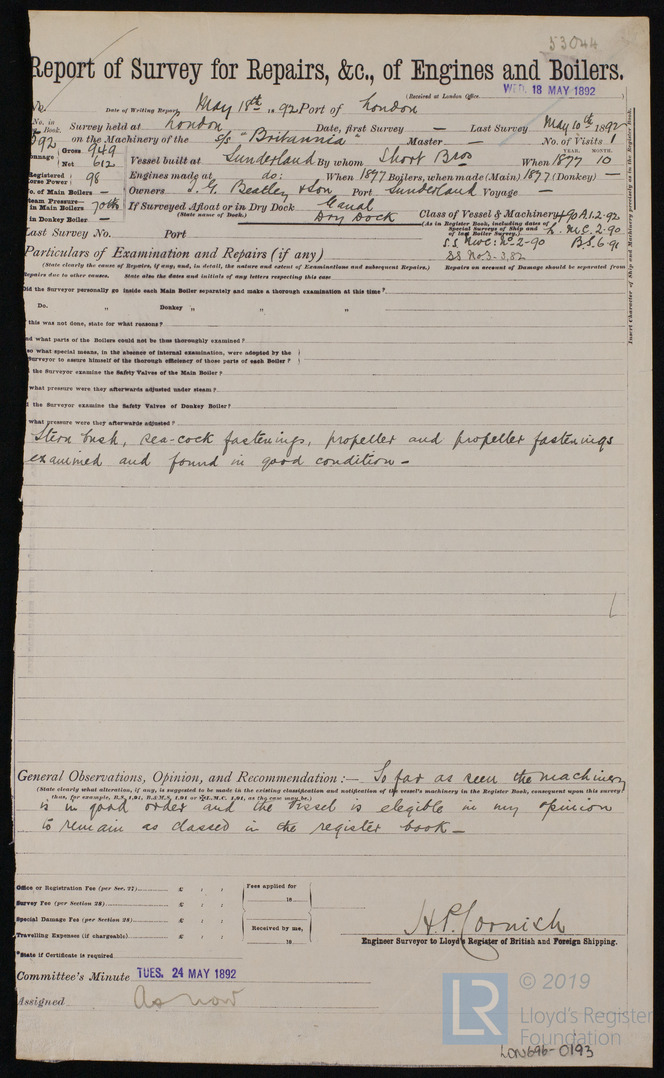 53044
Report of Survey for Repairs, &c., of Engines and Boilers.
(Received at London Office.
WED. 18 MAY 1892
Date of Writing Report May 18th 1892 Port of London
No. in Book. Survey held at London Date, first Survey — Last Survey May 10th 1892
on the Machinery of the s/s "Britannia" Master — No. of Visits 1
YEAR. MONTH.
Gross 949
Net 612 Vessel built at Sunderland By whom Short Bros When 1877 10
Registered Horse Power 98 Engines made at do: When 1877 Boilers, when made (Main) 1877 (Donkey) —
No. of Main Boilers — Owners Port Sunderland Voyage —
Steam Pressure— in Main Boilers 70 lbs If Surveyed Afloat or in Dry Dock Canal
(State name of Dock.) Dry Dock Class of Vessel & Machinery 90 A1. 2-92
in Donkey Boiler — (As in Register Book, including dates of Special Surveys of Ship and of last Boiler Survey.) L.M.C. 2-90
Last Survey No. Port 2-90 B.S. 6-91
Particulars of Examination and Repairs (if any) SS No 3-3.82
(State clearly the cause of Repairs, if any; and, in detail, the nature and extent of Examinations and subsequent Repairs.) Repairs on account of Damage should be separated from
Repairs due to other causes. State also the dates and initials of any letters respecting this case
Did the Surveyor personally go inside each Main Boiler separately and make a thorough examination at this time?
Do. " Donkey " " "
this was not done, state for what reasons?
what parts of the Boilers could not be thus thoroughly examined?
what special means, in the absence of internal examination, were adopted by the
Surveyor to assure himself of the thorough efficiency of those parts of each Boiler?
the Surveyor examine the Safety Valves of the Main Boiler?
what pressure were they afterwards adjusted under steam?
the Surveyor examine the Safety Valves of Donkey Boiler?
what pressure were they afterwards adjusted?
Stern bush, sea-cock fastenings, propeller and propeller fastenings
examined and found in good condition —
Insert Character of Ship and Machinery precisely as in the Register Book.
General Observations, Opinion, and Recommendation :— So far as seen the machinery
(State clearly what alteration, if any, is suggested to be made in the existing classification and notification of the vessel's machinery in the Register Book, consequent upon this survey
thus, for example, B.S. 1,91, B.&M.S. 1,91 or L.M.C. 1,91, as the case may be.)
is in good order and the vessel is eligible in my opinion
to remain as classed in the register book —
Office or Registration Fee (per Sec. 27) £ : : Fees applied for
Survey Fee (per Section 28) £ : : 18
Special Damage Fee (per Section 28) £ : : Received by me,
Travelling Expenses (if chargeable) £ : : 18
H.P. Cornish
Engineer Surveyor to Lloyd's Register of British and Foreign Shipping.
*State if Certificate is required
Committee's Minute TUES. 24 MAY 1892
Assigned As now
LR
© 2019
Lloyd's Register
Foundation
LON696-0193